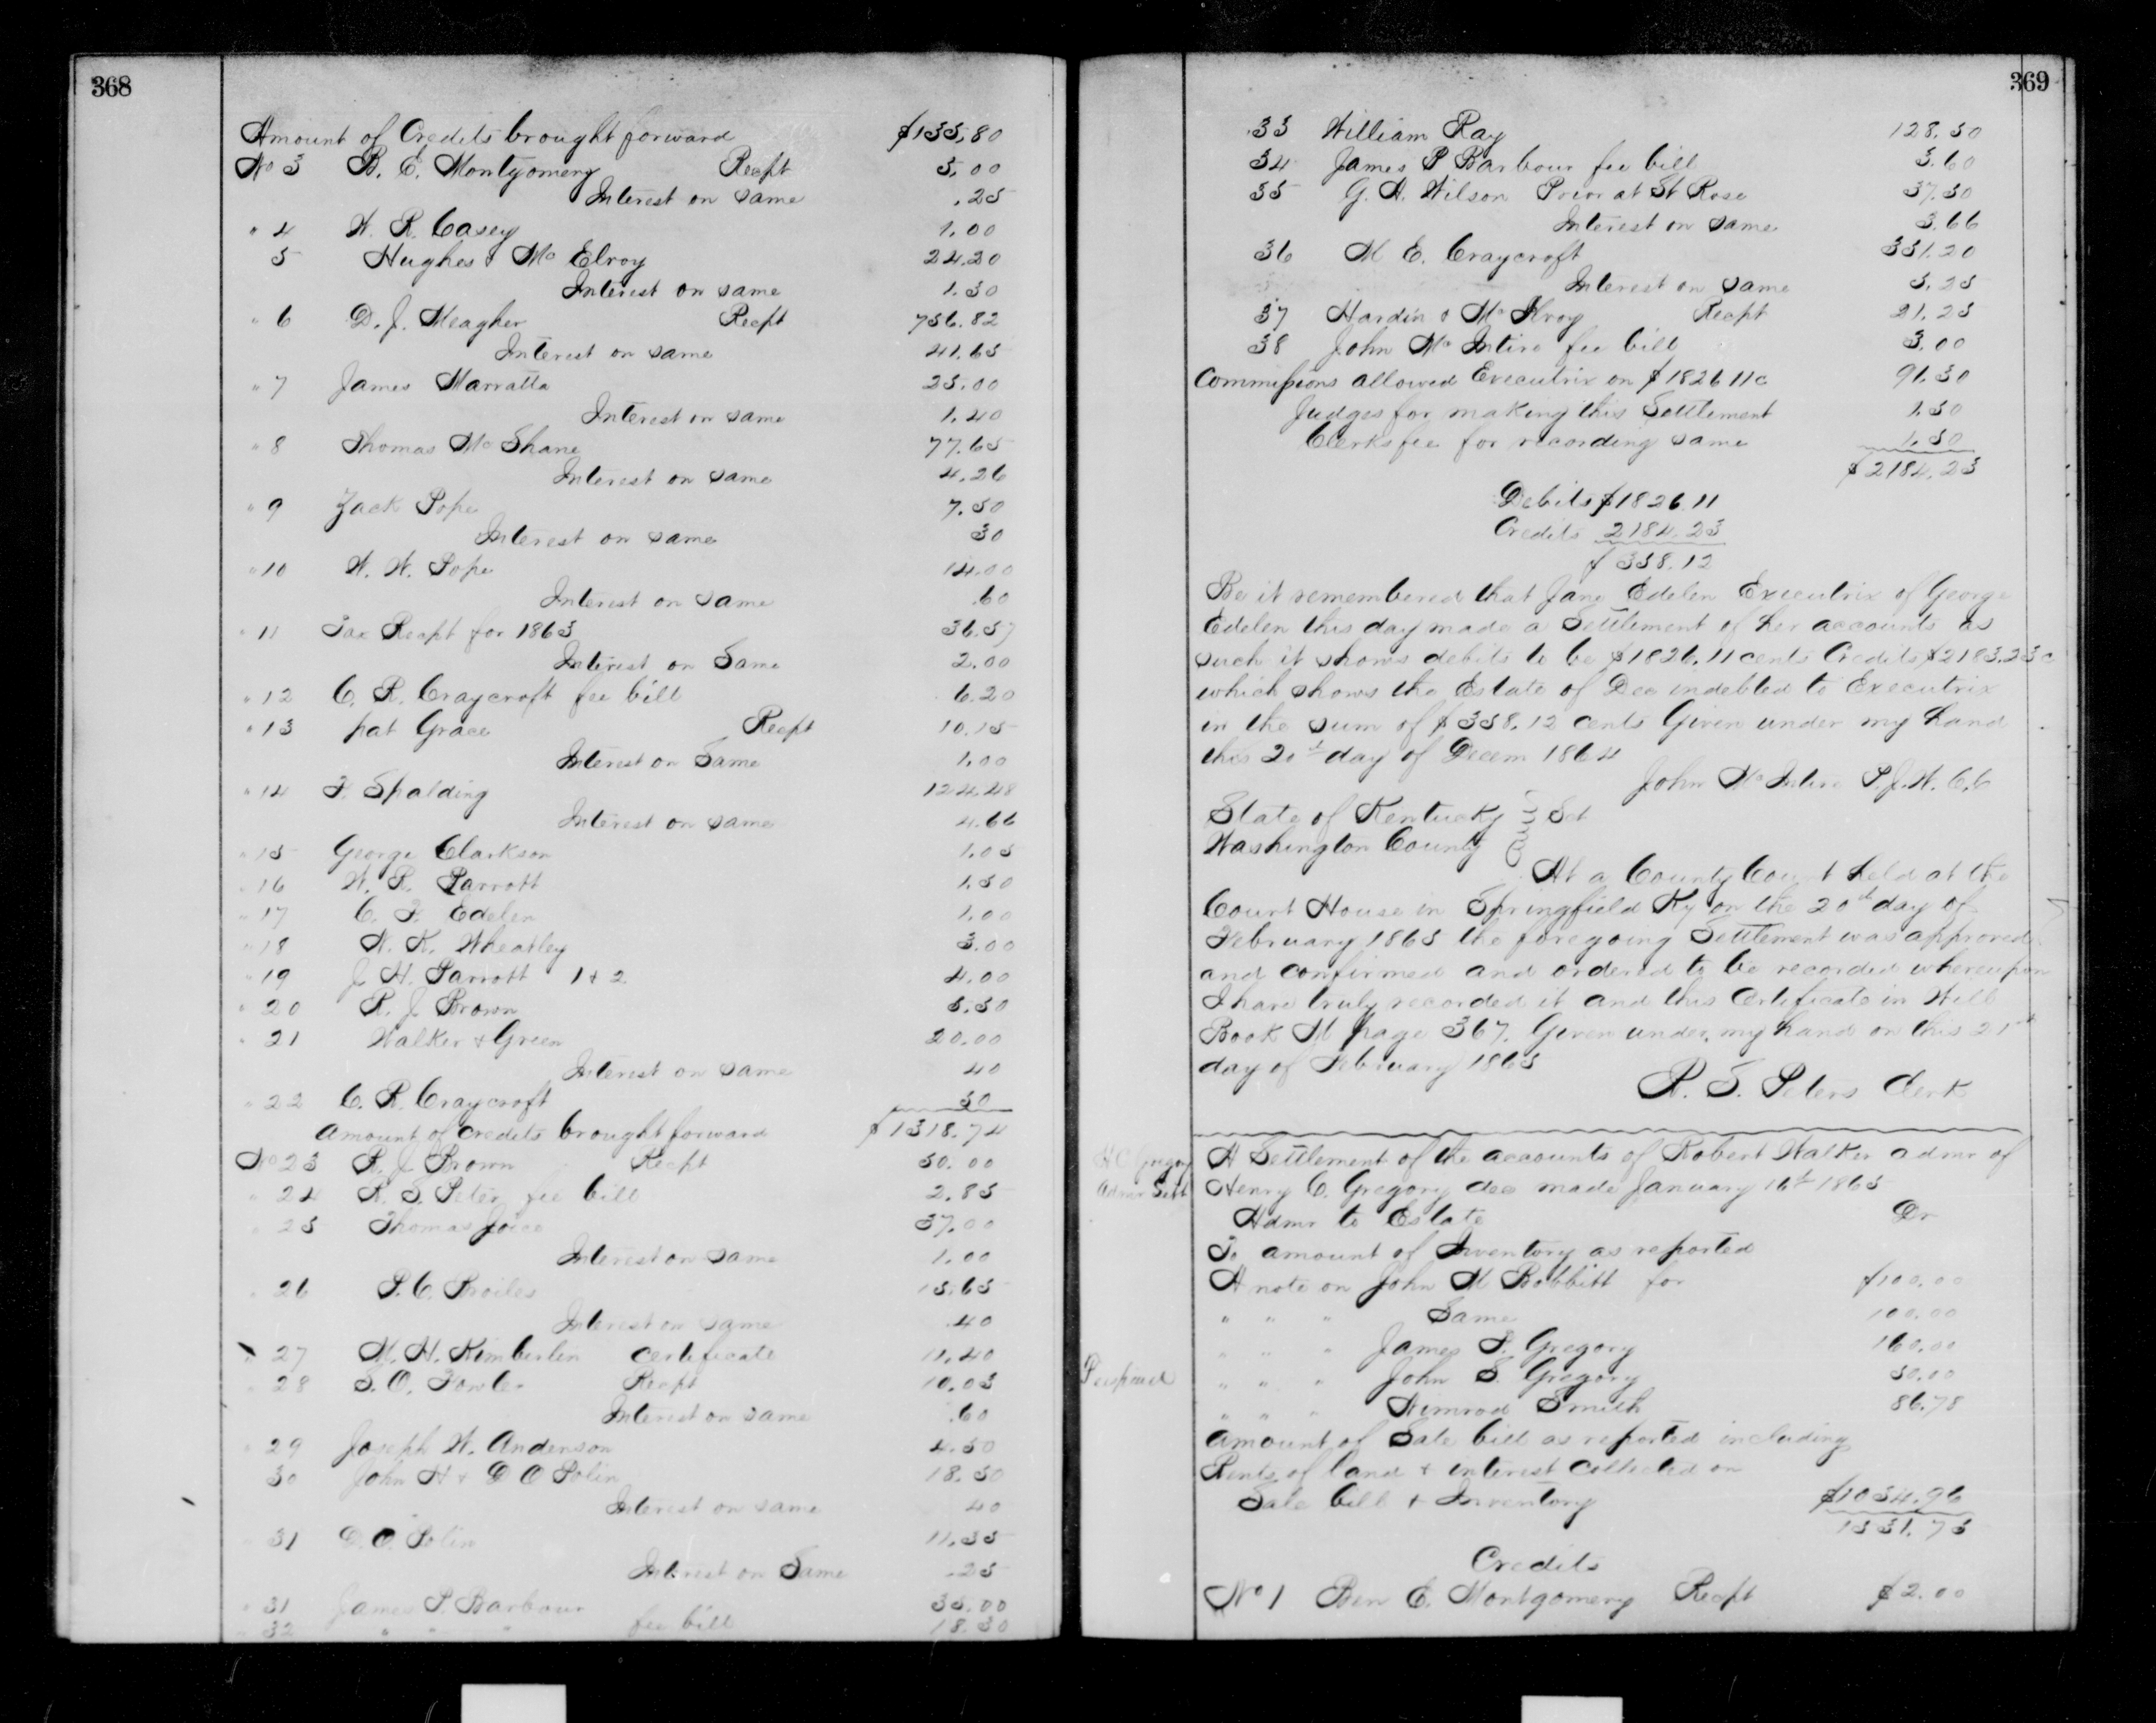 368
Amount of Credits brought forward $135,80
No 3 B. E. Montgomery Recpt 5,00
Interest on same .25
" 4 W. R. Casey 1.00
5 Hughes & Mc Elroy 24.20
Interest on same 1.30
" 6 D. J. Meagher Recpt 756.82
Interest on same 41.65
" 7 James Marratta 25.00
Interest on same 1.40
" 8 Thomas Mc Shane 77.65
Interest on same 4,26
" 9 Zack Pope 7.50
Interest on same 30
" 10 W. W. Pope 14.00
Interest on same .60
" 11 Tax Recpt for 1863 36.37
Interest on Same 2.00
" 12 C. R. Craycroft fee bill 6.20
" 13 pat Grace Recpt 10.15
Interest on Same 1.00
" 14 F. Spalding 124.48
Interest on same 4.66
" 15 George Clarkson 1.05
" 16 W. R. Parrott 1.50
" 17 C. F. Edelen 1.00
" 18 W. K. Wheatley 3.00
" 19 J. H. Parrott 1 & 2 4.00
" 20 R. J. Brown 5.50
" 21 Walker & Green 20.00
Interest on same 40
" 22 C. R. Craycroft 50
Amount of credits brought forward $1318.74
No 23 R. J. Brown Recpt 50.00
" 24 R. S. Peter fee bill 2.85
" 25 Thomas Joice 37.00
Interest on same 1.00
" 26 P. C. Broiles 15.65
Interest on same .40
" 27 M. H. Kimberlin certificate 11.40
" 28 S. O. Fowler Recpt 10.05
Interest on same .60
" 29 Joseph W. Anderson 4.50
30 John H & D O Polin 18.50
Interest on same 40
" 31 D. O. Polin 11.35
Interest on Same .25
" 31 James P. Barbour 35.00
" 32 " " " fee bill 18.50
369
33 William Ray 128.50
34 James P Barbour fee bill 3.60
35 G. A. Wilson Prior at St Rose 37.50
Interest on same 3.66
36 M E. Craycroft 331.20
Interest on same 5.25
37 Hardin & Mc Kroy Recpt 21.25
38 John Mc Intire fee bill 3.00
Commissions allowed Executrix on $1826 11c 91.30
Judges for making this Settlement 1.50
Clerks fee for recording same 1.50
$2184.23
Debits $1826.11
Credits 2184.23
$358.12
Be it remembered that Jane Edelen Executrix of George
Edelen this day made a Settlement of her accounts as
such it shows debits to be $1826.11 cents Credits $2183.23c
which shows the Estate of Dec indebted to Executrix
in the sum of $358.12 cents Given under my hand
this 20th day of Decem 1864
John Mc Intire P.J.W.C.C
State of Kentucky Sct
Washington County
At a County Court held at the
Court House in Springfield Ky on the 20th day of
February 1865 the foregoing Settlement was approved
and confirmed and ordered to be recorded whereupon
I have truly recorded it and this Certificate in Will
Book M page 367. Given under my hand on this 21st
day of February 1865
R. S. Peters Clerk
H C Gregory
Admr Sett
A Settlement of the accounts of Robert Walker admr of
Henry C. Gregory dec made January 16th 1865
Admr to Estate Dr
To amount of Inventory as reported
A note on John M Bobbitt for $100.00
" " " Same 100.00
" " " James P. Gregory 160.00
" " " John S. Gregory 50.00
" " " Nimrod Smith 86.78
Amount of Sale bill as reported including
Rents of land & interest collected on
Sale bill & Inventory $1034.96
1531.73
Credits
No 1 Ben E. Montgomery Recpt $2.00